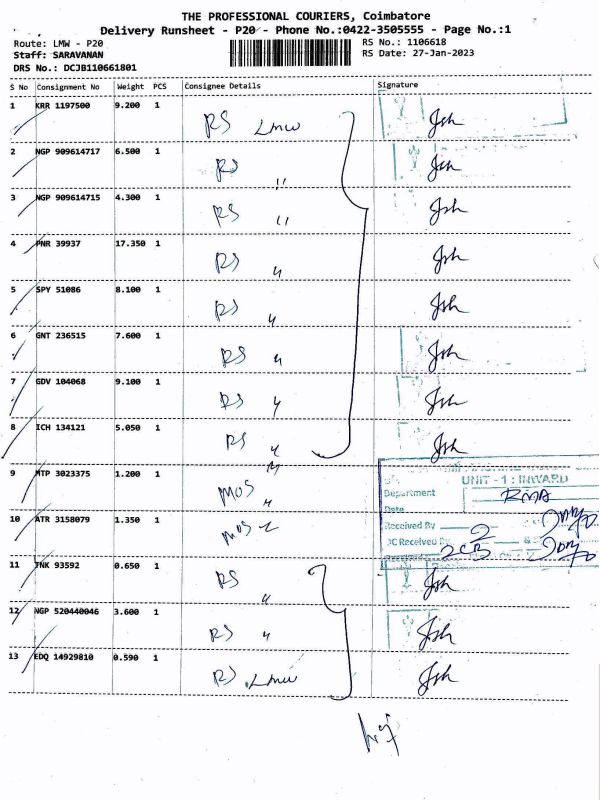 THE PROFESSIONAL COURIERS, Coimbatore
Delivery Runsheet - P20 - Phone No.:0422-3505555 - Page No.:1
Route: LMW - P20
RS No.: 1106618
Staff: SARAVANAN
RS Date: 27-Jan-2023
DRS No.: DCJB110661801
S No Consignment No Weight PCS Consignee Details Signature
1 KRR 1197500 9.200 1 RS LMW
2 NGP 909614717 6.500 1 RS "
3 NGP 909614715 4.300 1 RS "
4 PNR 39937 17.350 1 RS "
5 SPY 51086 8.100 1 RS "
6 GNT 236515 7.600 1 RS "
7 GDV 104068 9.100 1 RS "
8 ICH 134121 5.050 1 RS "
9 MTP 3023375 1.200 1 MOS "
UNIT - 1 : INWARD
Department RMA
Date
10 ATR 3158079 1.350 1 MOS
Received By
DC Received By
11 TNK 93592 0.650 1 RS "
12 NGP 520440046 3.600 1 RS "
13 EDQ 14929810 0.590 1 RS LMW